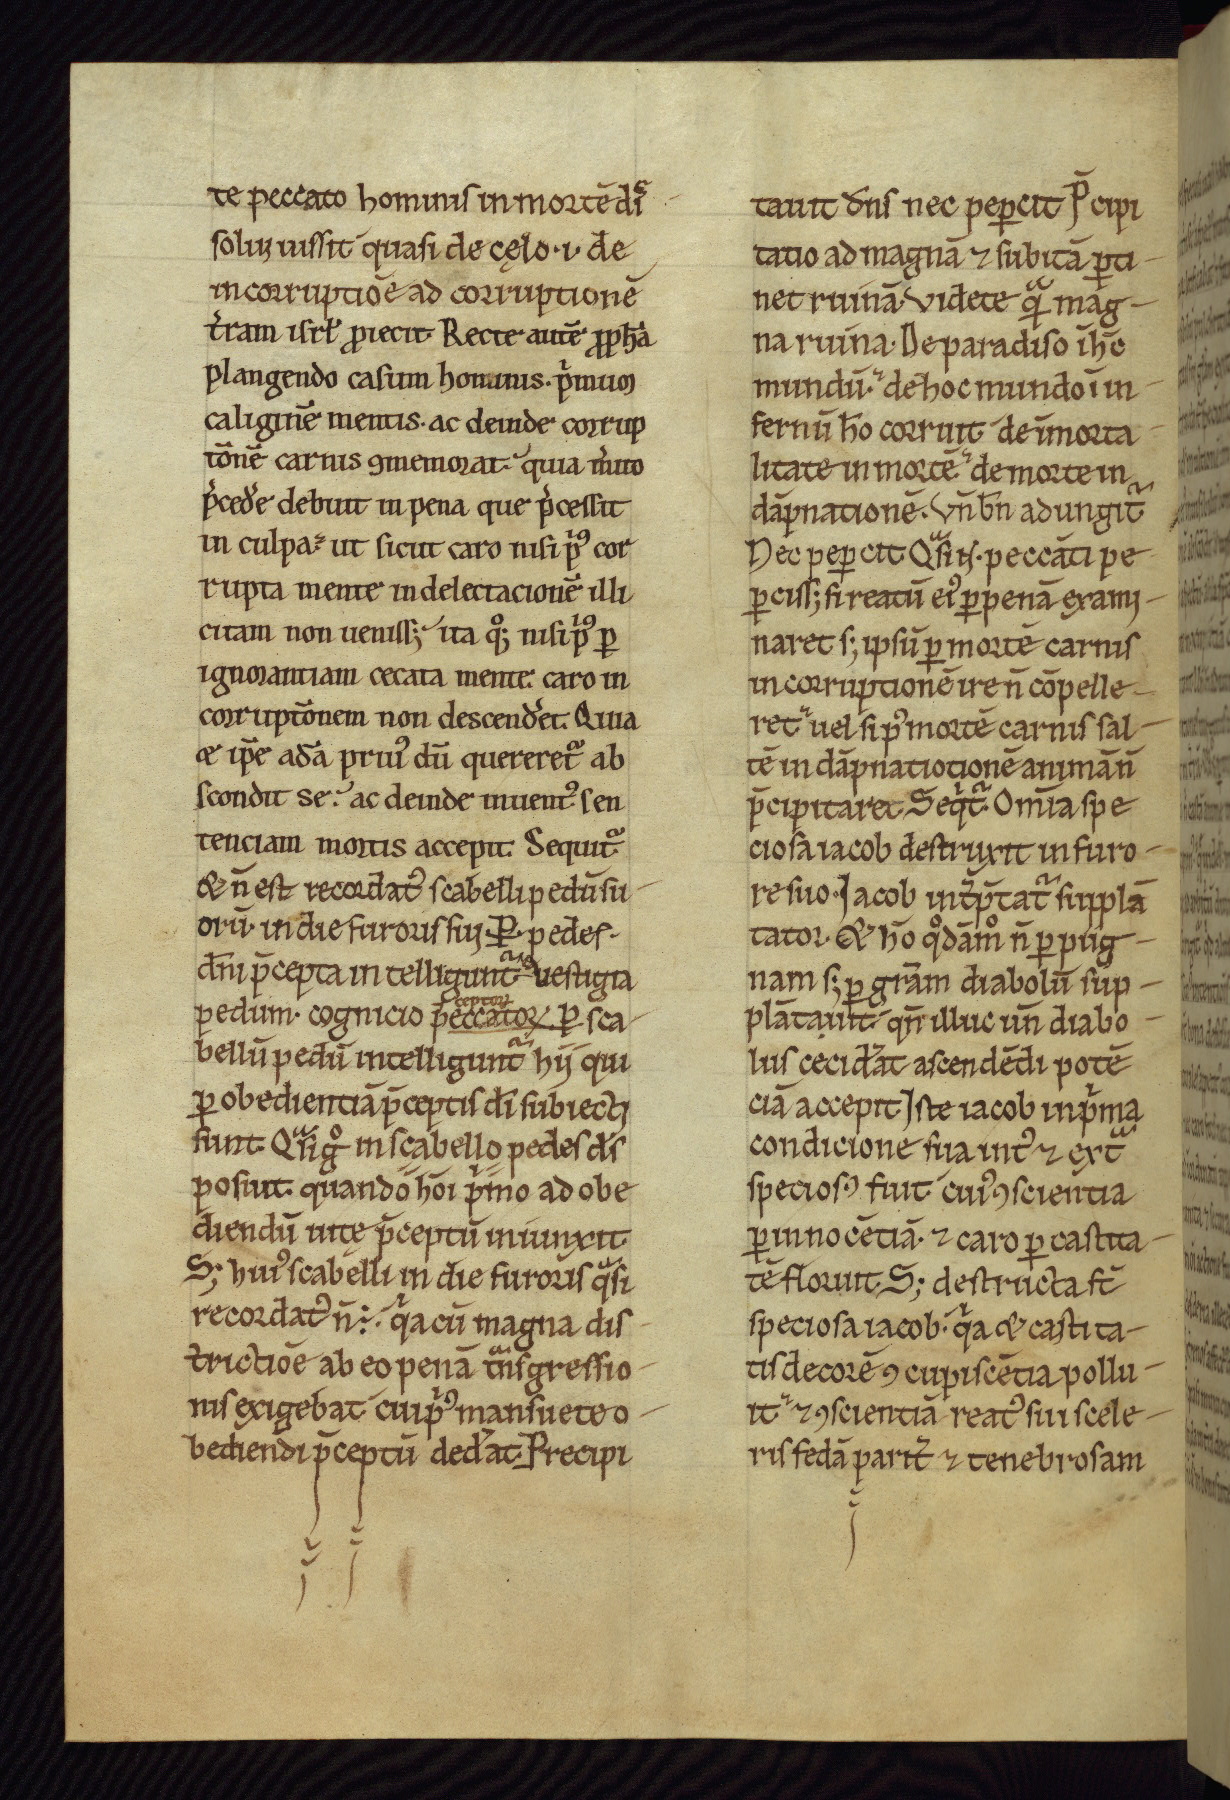 te peccato hominis in mortē di
soluꝫ iussit quasi de cęlo ·i· de
incorruptiōe ad corruptionē
t̓ram isrł ꝓiecit. Recte autē ꝓph̄a
plangendo casum hominis. p̓mum
caliginē mentis. ac deinde corrup
tōnē carnis ꝯmemorat. quia m̓ito
p̓ced̓e debuit in pena que p̓cessit
in culpa. ut sicut caro nisi pͥꝰ cor
rupta mente in delectacionē illi
citam non uenissꝫ ita qͦꝫ nisi pͥꝰ ꝑ
ignorantiam cecata mente. caro in
corruptōnem non descend̓et. Quia
⁊ ip̄e adā priuꝰ dū quereretᷓ ab
scondit se. ac deinde inuentꝰ sen
tenciam mortis accepit. Sequitᷓ
& n̄ est recordatꝰ scabelli pedū su
orū. in die furoris sui. ꝑ pedes
dn̄i p̄cepta intelliguntᷓ vestigia
pedum. cognicio p̄eccatoꝝ ceptoꝝ. ꝑ sca
bellū pedū intelliguntᷓ hij qui
ꝑ obedientiā p̄ceptis dī subiecti
sunt. Qᷓsi gͦ in scabello pedes dn̄s
posuit. quando hōi p̓mo ad obe
diendū uitę p̄ceptū iniunxit
Sꝫ huiꝰ scabelli in die furoris qᷓsi
recordatꝰ n̄ ÷. qͥa cū magna dis
trictiōe ab eo penā tᷓnsgressio
nis exigebat cui pͥꝰ mansuete o
bediendi p̄ceptū ded̓at. Precipi
tauit dn̄s nec peꝑcit P̄cipi
tatio ad magnā ⁊ subitā ꝑti
net ruinā. Videte qᷓm mag
na ruina. De paradiso ī hᷓc
mundū. de hoc mundo ī in
fernū hō corruit de īmorta
litate in mortē. de morte in
dāpnationē. Vn̄ bn̄ adiungitᷓ
Nec peꝑcit Qᷓsi n̄. peccāti pe
ꝑcissꝫ si reatū eiꝰ ꝑ penā exami
naret sꝫ ipsū ꝑ mortē carnis
in corruptionē ire n̄ cōpelle
ret uel si pꝰ mortē carnis sal
tē in dāpnatiotionē animā n̄
p̄cipitaret. Seqͥtᷓ. Omīa spe
ciosa iacob destruxit in furo
re suo. Jacob int̓p̄tatᷓ supplā
tator. & hō qͦdāmͦ n̄ ꝑ pug
nam sꝫ ꝑ grām diabolū sup
plātauit qn̄ illuc un̄ diabo
lus cecid̓at ascendēdi potē
ciā accepit Iste iacob in p̓ma
condicione sua int̓ ⁊ extᷓ
speciosꝰ fuit cuiꝰ ꝯscientia
ꝑ innocētiā. ⁊ caro ꝑ castita
tē floruit. Sꝫ destructa st̄
speciosa iacob. qͥa & castita
tis decorē ꝯcupiscētia pollu
it ⁊ ꝯscientiā reatꝰ sui scele
ris fedā parit̓ ⁊ tenebrosam